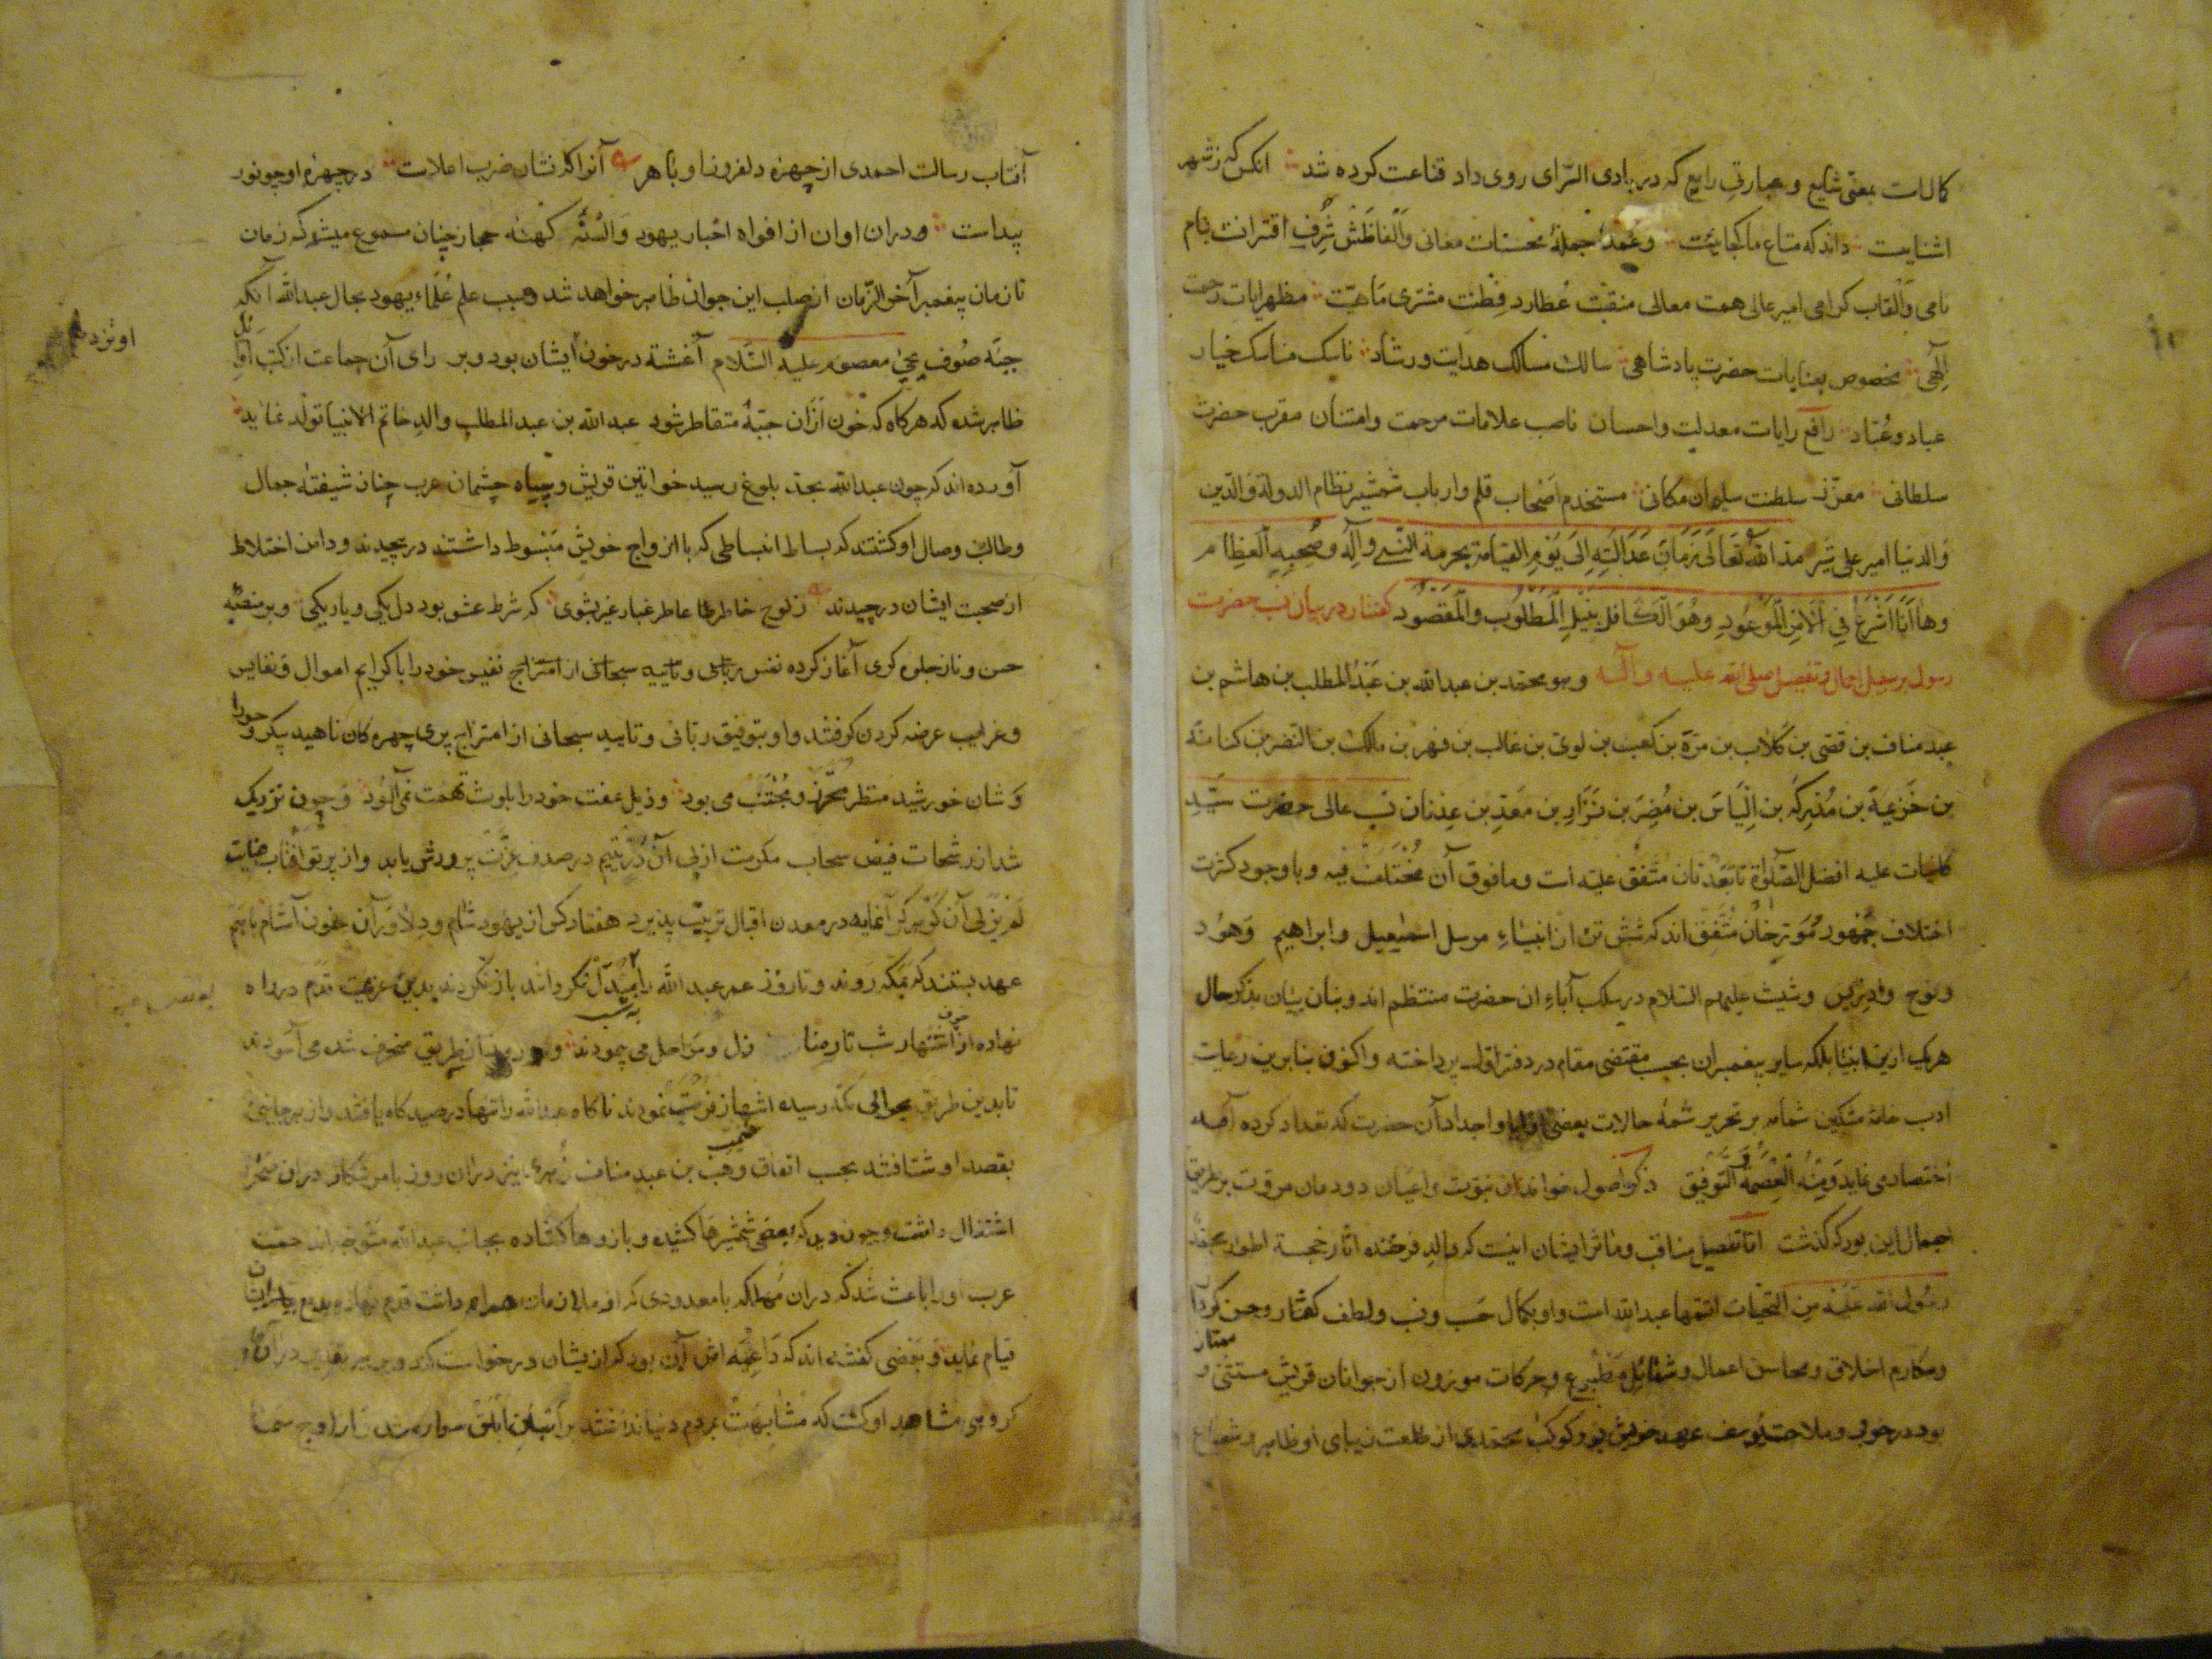 کالات بمعنی شایع و عبارتی رایع که در بادی الرّای روی داد قناعت کرده شد انکس که ز شهر
اشناییست داند که متاع ما کجاییست و عمده جملهٔ محسنات معانی و الفاظش شرف اقترانت بنام
نامی و القاب کرامی امیر عالی همت معالی منقبت عطارد فطنت مشتری ماهیّت مظهر ایات رحمت
الهی مخصوص بعنایات حضرت پادشاهی سالک مسالک هدایت و رشاد ناسک مناسک خیار
عباد و عُبّاد رافع رایات معدلت و احسان ناصب علامات مرحمت و امتنان مقرب حضرت
سلطانی معزّز سلطنت سلیمان مکانی مستخدم اصحاب قلم و ارباب شمشیر نظام الدولة و الدین
و الدنیا امیر علی شیر مد الله تعالی زمان عدالته الی یوم القیامة بحرمة النبی و آله و صحبه العظام
وها انا اشرع فی الامر الموعود و هو الکافل بنیل المطلوب و المقصود کفتار در بیان نسب حضرت
رسول بر سبیل اجمال و تفصیل صلی الله علیه و آله و هو محمد بن عبد الله بن عبد المطلب بن هاشم بن
عبد مناف بن قصی بن کلاب بن مرّة بن کعب بن لوی بن غالب بن فهر بن مالک بن النضر بن کنانة
بن خزیمة بن مدرکة بن الیاس بن مضر بن نزار بن معد بن عدنان نسب عالی حضرت سیّد
کاینات علیه افضل الصلوة تا بعدنان متفق علیه است و مافوق آن مختلف فیه و با وجود کثرت
اختلاف جمهور مورخان متفق اند که شش تن از انبیاء مرسل اسمعیل و ابراهیم و هود
و نوح و ادریس و شیث علیهم السلام در سلک آباء ان حضرت منتظم اند و بنان بیان بذکر حال
هریک ازین انبیا بلکه سایر پیغمبران بحسب مقتضی مقام در دفتر اوّل پرداخته و اکنون بنابرین رعایت
ادب خامهٔ مشکین شمامه بر تحریر شمهٔ حالات بعضی از آبا و اجداد آن حضرت که تعداد کرده آمده
اختصار می نماید و منه العصمة و التوفیق ذکر اصول خواندان نبوّت و اعیان دودمان مروت بر طریق
اجمال این بود که گذشت امّا تفصیل مناقب و ماثر ایشان اینست که والد فرخنده اثار خجسته اطوار محمد
رسول الله علیه من التحیات اتمها عبد الله است و او بکمال حسب و نسب و لطف کفتار و حسن کردار
و مکارم اخلاق و محاسن اعمال و شمایل مطبوع و حرکات موزون از جوانان قریش مستثنی و ممتاز
بود در خوبی و ملاحت یوسف عهد خویش بود کوکب محمدی از طلعت زیبای او ظاهر و شعاع
آفتاب رسالت احمدی از چهره دلفروز او باهر آنرا که نشان ضرب اعلاست در چهره او چو نور
پیداست و دران اوان از افواه احبار یهود و السنه کهنه حجاز چنان مسموع میشد که زمان
تا زمان پیغمبر آخر الزّمان از صلب این جوان ظاهر خواهد شد و سبب علم علماء یهود بحال عبد الله آنکه
جبّه صوف یحیی معصوم علیه السّلام آغشته در خون ایشان بود و بر رای آن جماعت از کتب اوایل
ظاهر شده که هرکاه که خون ازان جبّه متقاطر شود عبد الله بن عبد المطلب والد خاتم الانبیا تولد نماید
آورده اند که چون عبد الله بحد بلوغ رسید خواتین قریش و سیاه چشمان عرب چنان شیفته جمال
و طالب وصال او کشتند که بساط انبساطی که با ازواج خویش مبسوط داشتند در پیچیدند و دامن اختلاط
از صحبت ایشان در چیدند ز لوح خاطر عاطر غبار غیر بشوی که شرط عشق بود دل یکی و یار یکی و بر منصّه
حسن و ناز جلوه کری آغاز کرده نفس خود را با کرایم اموال و نفایس
و غرایب عرضه کردن کرفتند و او بتوفیق ربانی و تایید سبحانی از امتزاج پری چهره کان ناهید پیکر و حورا
وشان خورشید منظر محترز و مجتنب می بود و ذیل عفت خود را بلوث تهمت نمی آلود و چون نزدیک
شد از رشحات فیض سحاب مکرمت ازلی آن دُرّ یتیم در صدف عزّت پرورش یابد و از پرتو آفتاب عنایت
لم یزلی آن کوهر کرانمایه در معدن اقبال تربیت پذیرد هفتاد کس از یهود شام و دلاوران خون آشام باهم
عهد بستند که بمکه روند و تا روز عمر عبد الله را نکردانند باز نکردند بدین عزیمت قدم در راه
نهاده از خوف اشتهار شب تار منازل و مراحل می پیمودند و روز از طریق منحرف شده می آسودند
تا بدین طریق بحوالی مکه رسیده انتهاز فرصت نمودند ناکاه عبد الله را تنها در صیدکاه یافتند و از هر جانب
بقصد او شتافتند بحسب اتفاق وهب بن عبد مناف زهره نیز دران روز بامر شکار دران صحرا
اشتغال داشت و چون دید که بعضی شمشیرها کشیده و بازوها کشاده بجانب عبد الله متوجه اند حمیت
عرب او را باعث شد که دران مهلکه با معدودی که از ملازمان همراه داشت قدم نهاده بدفع ایشان
قیام نماید و بعضی کفته اند که داعیه اش آن بود که از ایشان درخواست کند
کروهی مشاهد او کشت که مشابهت بمردم دنیا نداشتند بر اسبان ابلق سوار شده از اوج سما